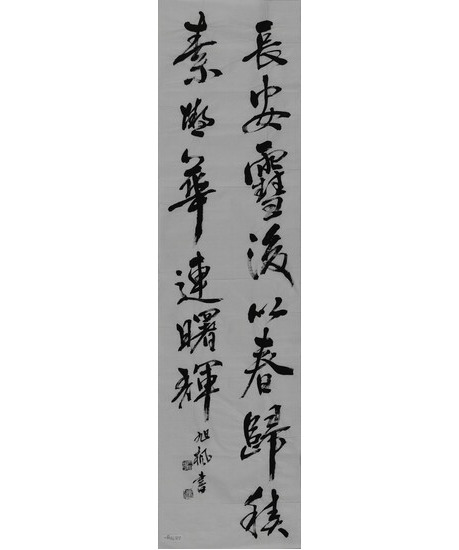 長安雪後似春歸積
素凝華連曙輝
旭楓書